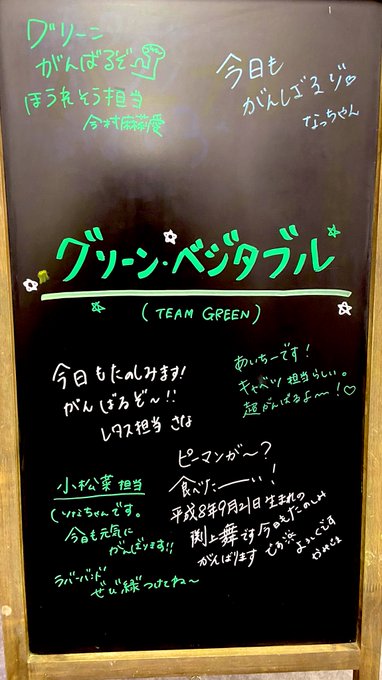 グリーン
がんばるぞ
ほうれそう担当
今村麻莉愛
今日も
がんしばるゾ♡
なっちゃん
グリーン・ベジタブル
(TEAM GREEN)
今日もたのしみます!
がんばるぞ〜!!
レタス担当 さな
あいちーです!
キャベツ担当らしい。
超がんばるよ〜!♡
ピーマンが〜?
食べたーーい!
平成8年9月21日生まれの
渕上舞です今日もたのしみ
がんばります
よろしくです
小松菜担当
りなちゃんです。
今日も元気に
がんばります!!
ラバーバンド
ぜひ緑つけてね〜